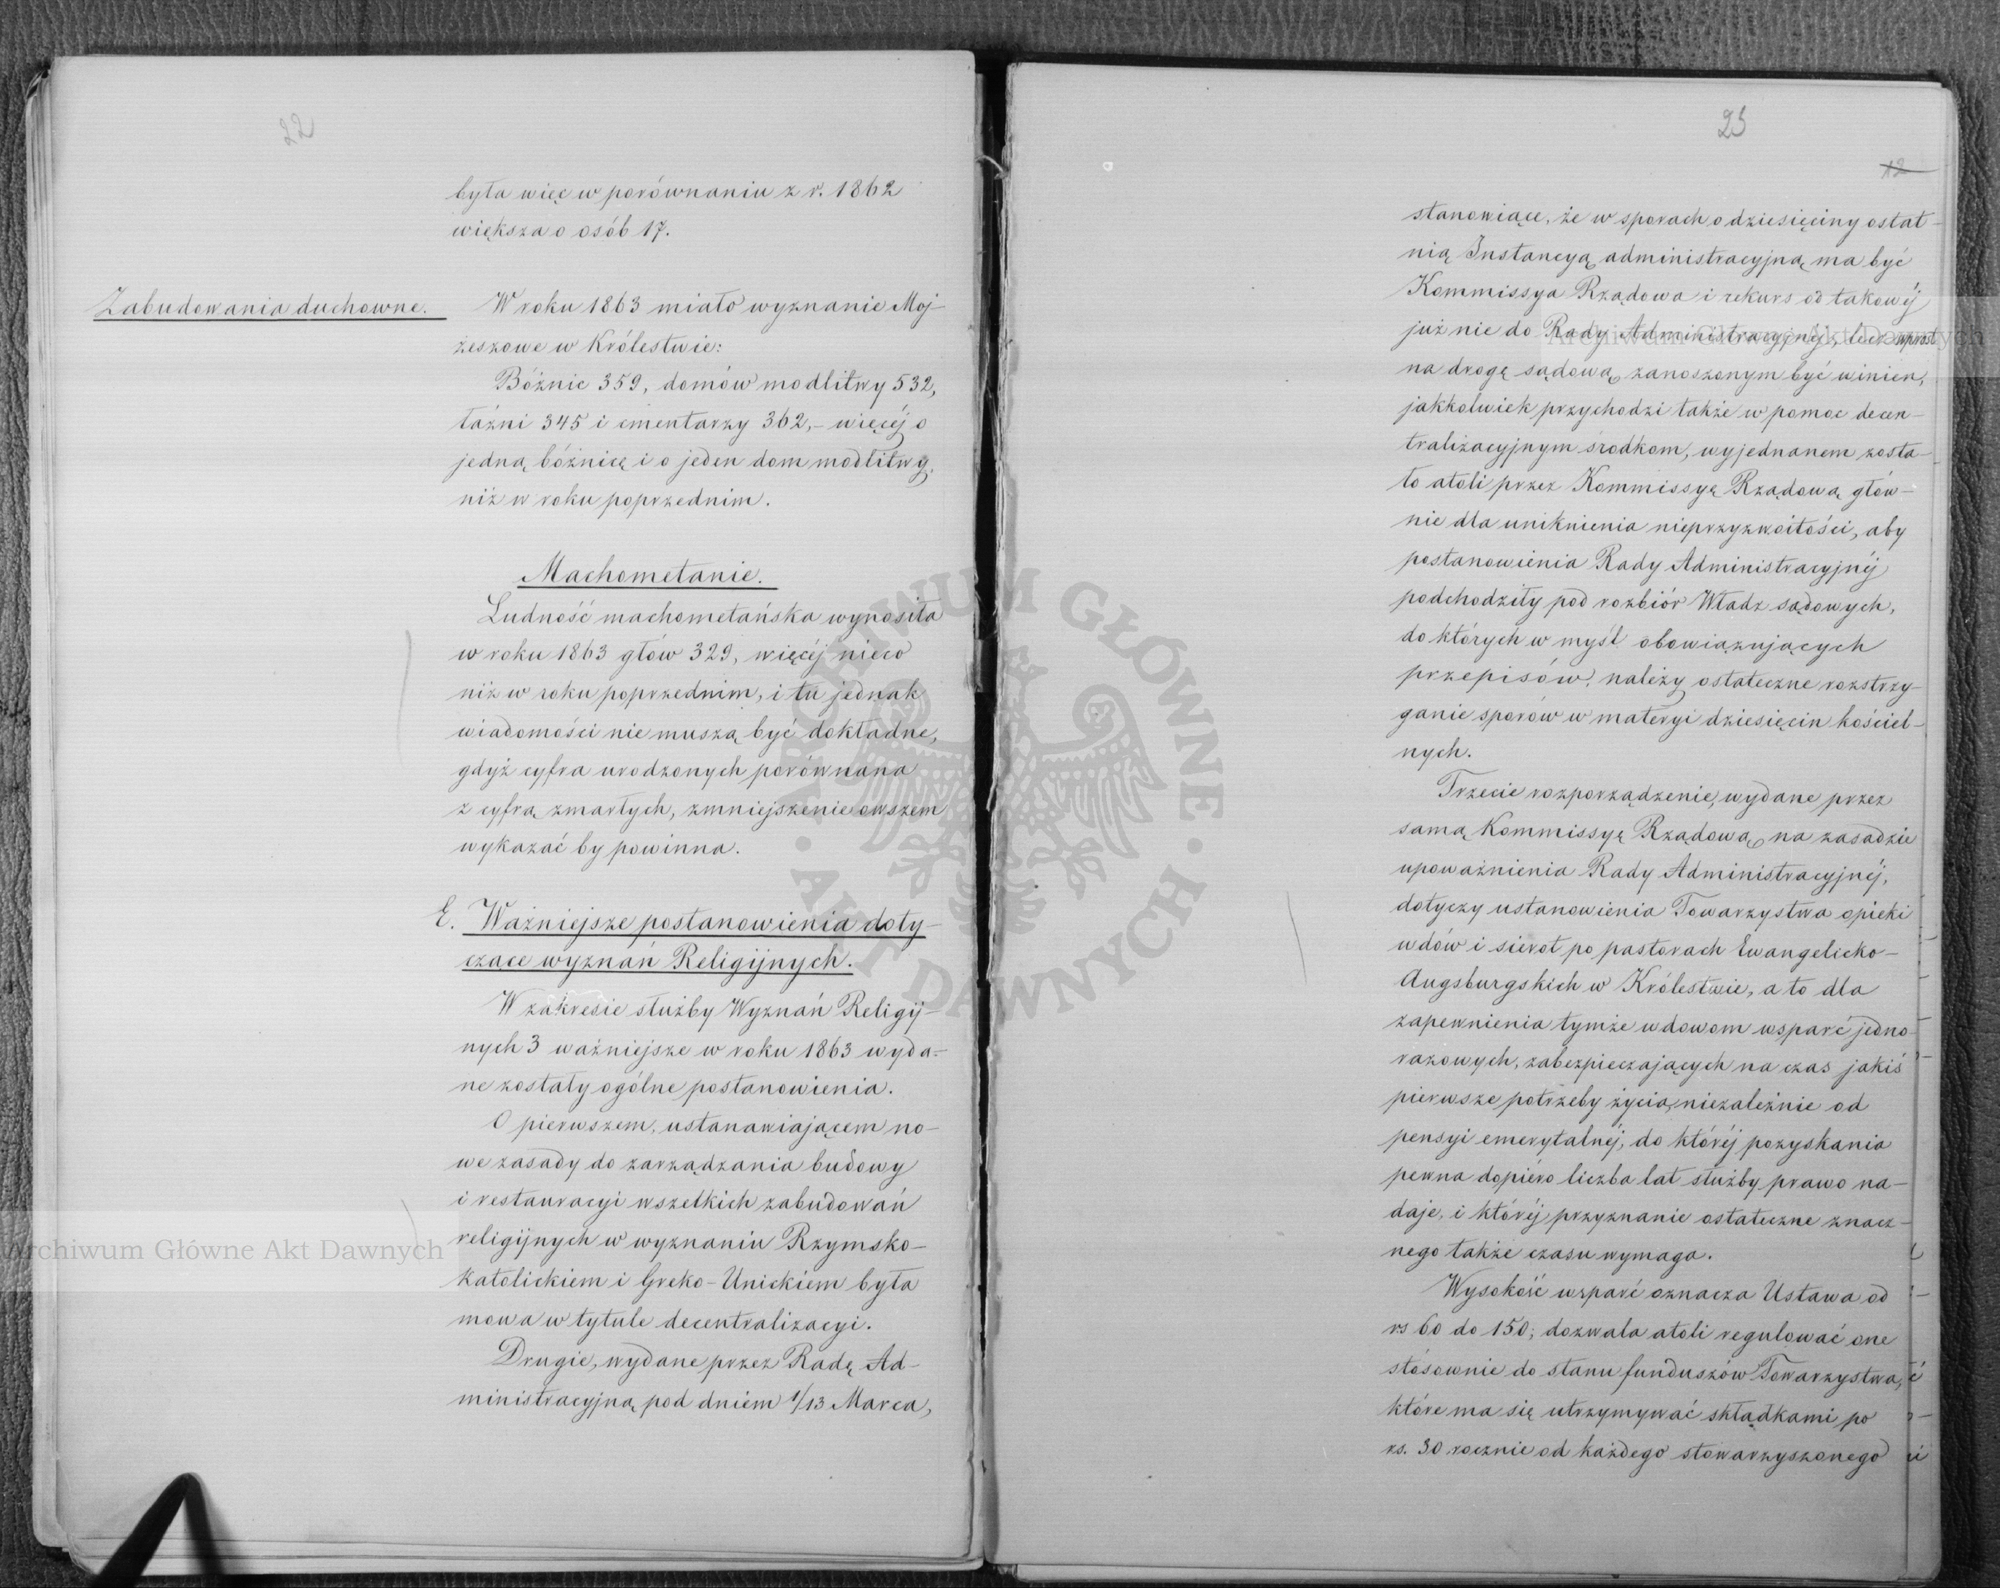 22
była więc w porównaniu z r. 1862
większa o osób 17.
Zabudowania duchowne.
W roku 1863 miało wyznanie Moj-
żeszowe w Królestwie:
Bóżnic 359, domów modlitwy 532,
łaźni 345 i cmentarzy 362,- więcéj o
jedną bóżnicę i o jeden dom modlitwy,
niż w roku poprzednim.
Machometanie.
Ludność machometańska wynosiła
w roku 1863 głów 329, więcéj nieco
niż w roku poprzednim, i tu jednak
wiadomości nie muszą być dokładne,
gdyż cyfra urodzonych porównana
z cyfrą zmarłych, zmniejszenie owszem
wykazać by powinna.
E. Ważniejsze postanowienia doty-
czące wyznań Religijnych.
W zakresie służby Wyznań Religij-
nych 3 ważniejsze w roku 1863 wyda-
ne zostały ogólne postanowienia.
O pierwszem, ustanawiającem no-
we zasady do zarządzania budowy
i restauracyi wszelkich zabudowań
religijnych w wyznaniu Rzymsko-
katolickiem i Greko-Unickiem była
mowa w tytule decentralizacyi.
Drugie, wydane przez Radę Ad-
ministracyjną pod dniem 1/13 Marca,
23
12
stanowiące, że w sporach o dziesięciny ostat-
nią Instancyą administracyjną ma być
Kommissya Rządowa i rekurs od takowéj
już nie do Rady Administracyjnéj, lecz wprost
na drogę sądową zanoszonym być winien,
jakkolwiek przychodzi także w pomoc decen-
tralizacyjnym środkom, wyjednanem zosta-
ło atoli przez Kommissyę Rządową głów-
nie dla uniknienia nieprzyzwoitości, aby
postanowienia Rady Administracyjnéj
podchodziły pod rozbiór Władz sądowych,
do których w myśl obowiązujących
przepisów, należy ostateczne rozstrzy-
ganie sporów w materyi dziesięcin kościel-
nych.
Trzecie rozporządzenie, wydane przez
samą Kommissyę Rządową, na zasadzie
upoważnienia Rady Administracyjnéj,
dotyczy ustanowienia Towarzystwa opieki
wdów i sierot po pastorach Ewangelicko-
Augsburgskich w Królestwie, a to dla
zapewnienia tymże wdowom wsparć jedno-
razowych, zabezpieczających na czas jakiś
pierwsze potrzeby życia, niezależnie od
pensyi emerytalnéj, do któréj pozyskania
pewna dopiéro liczba lat służby prawo na-
daje, i któréj przyznanie ostateczne znacz-
nego także czasu wymaga.
Wysokość wsparć oznacza Ustawa od
rs 60 do 150; dozwala atoli regulować one
stósownie do stanu funduszów Towarzystwa,
które ma się utrzymywać składkami po
rs. 30 rocznie od każdego stowarzyszonego
Archiwum Główne Akt Dawnych
Archiwum Główne Akt Dawnych
ARCHIWUM GŁÓWNE · AKT DAWNYCH ·